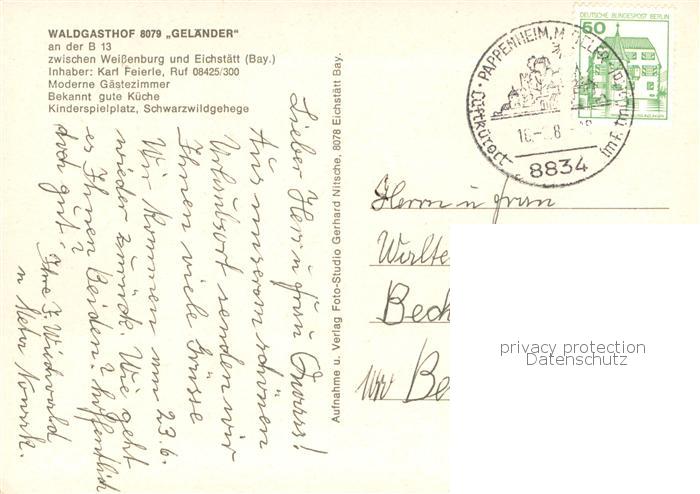 WALDGASTHOF 8079 „GELÄNDER"
an der B 13
zwischen Weißenburg und Eichstätt (Bay.)
Inhaber: Karl Feierle, Ruf 08425/300
Moderne Gästezimmer
Bekannt gute Küche
Kinderspielplatz, Schwarzwildgehege
Lieber Herr u. Frau
Aus unserem schönen
Urlaubsort senden wir
Ihnen viele Grüsse
Wir kommen am 23.6.
wieder zurück. Wie geht
es Ihnen Beiden? hoffentlich
doch gut
Ihre
u
Aufnahme u. Verlag Foto-Studio Gerhard Nitsche, 8078 Eichstätt Bay.
DEUTSCHE BUNDESPOST BERLIN
50
PAPPENHEIM
Luftkurort
8834
Herrn u Frau
Walte
Bech
Be
privacy protection
Datenschutz